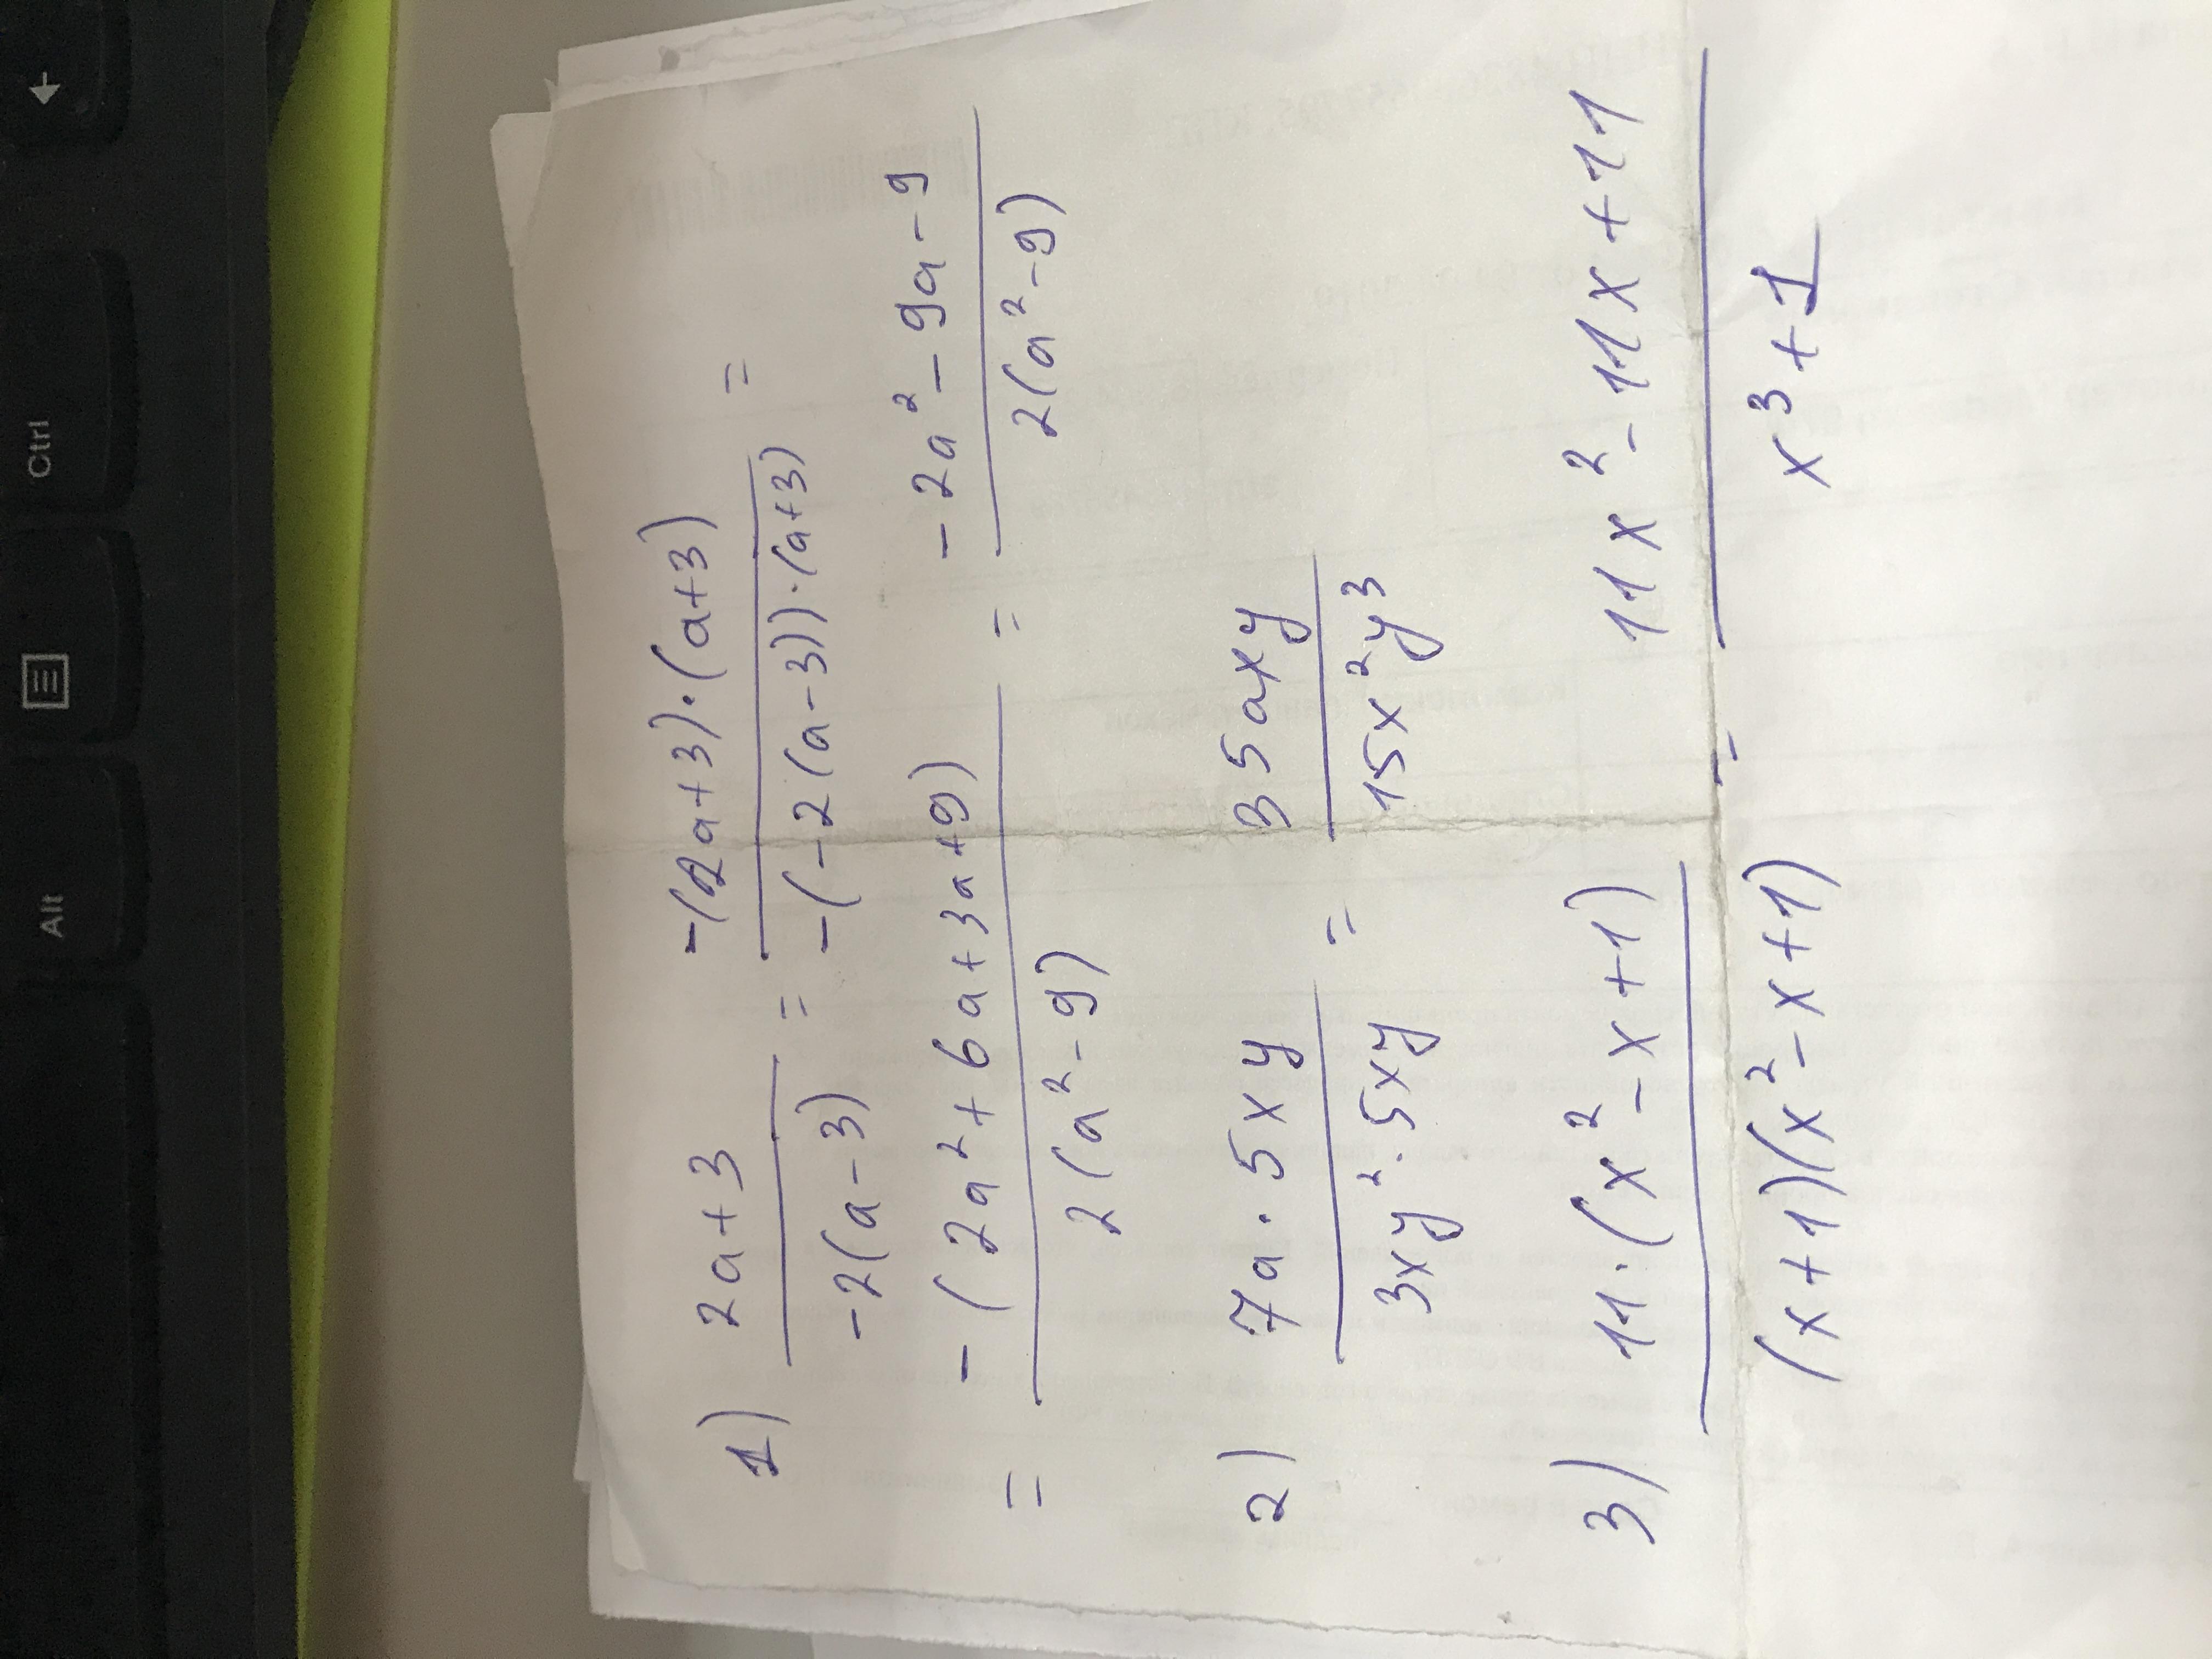 Alt
Ctrl
1) (2a+3)/(-2(a-3)) = (-(2a+3)·(a+3))/(-(-2(a-3))·(a+3)) =
= (-(2a²+6a+3a+9))/(2(a²-9)) = (-2a²-9a-9)/(2(a²-9))
2) (7a·5xy)/(3xy²·5xy) = (35axy)/(15x²y³)
3) (11·(x²-x+1))/((x+1)(x²-x+1)) = (11x²-11x+11)/(x³+1)